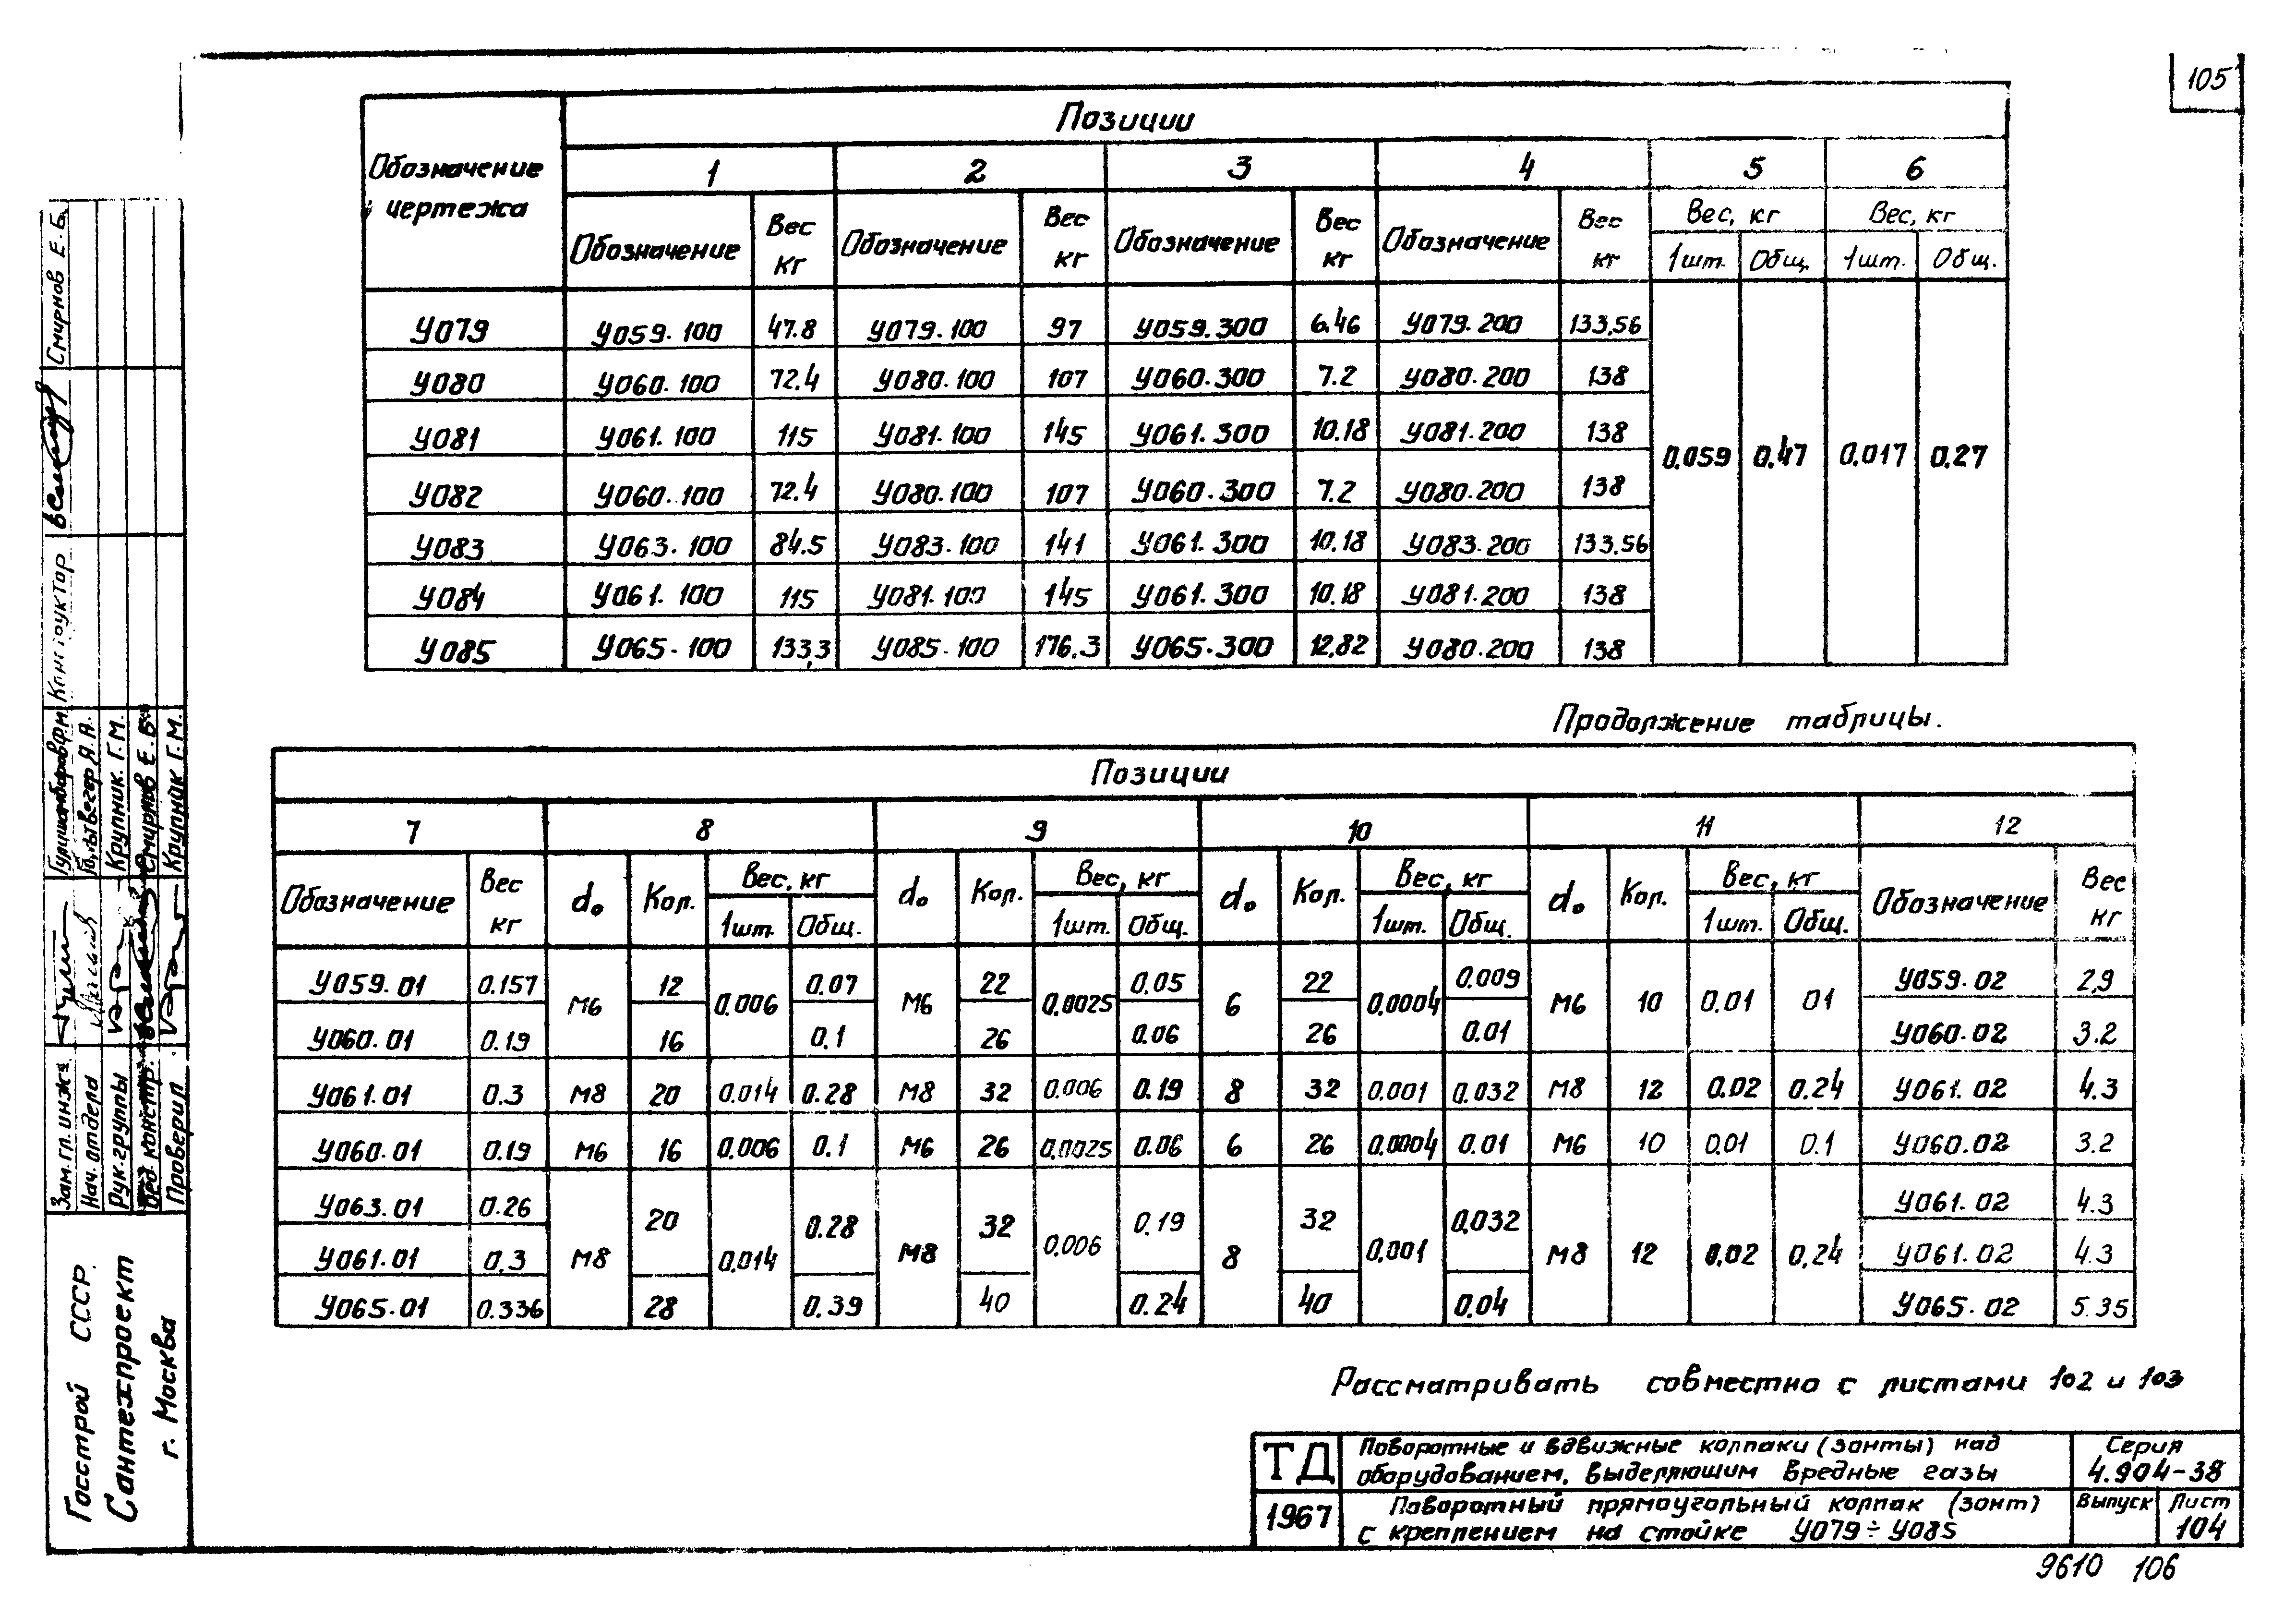 105
Позиции
Обозначение чертежа 1 2 3 4 5 6
Обозначение Вес кг Обозначение Вес кг Обозначение Вес кг Обозначение Вес кг Вес, кг Вес, кг
1шт. Общ. 1шт. Общ.
У079 У059.100 47.8 У079.100 97 У059.300 6.46 У079.200 133,56
У080 У060.100 72.4 У080.100 107 У060.300 7.2 У080.200 138
У081 У061.100 115 У081.100 145 У061.300 10.18 У081.200 138
0.059 0.47 0.017 0.27
У082 У060.100 72.4 У080.100 107 У060.300 7.2 У080.200 138
У083 У063.100 84.5 У083.100 141 У061.300 10.18 У083.200 133.56
У084 У061.100 115 У081.100 145 У061.300 10.18 У081.200 138
У085 У065.100 133,3 У085.100 176.3 У065.300 12.82 У080.200 138
Продолжение таблицы.
Позиции
7 8 9 10 11 12
Обозначение Вес кг d₀ Кол. Вес, кг d₀ Кол. Вес, кг d₀ Кол. Вес, кг d₀ Кол. Вес, кг Обозначение Вес кг
1шт. Общ. 1шт. Общ. 1шт. Общ. 1шт. Общ.
У059.01 0.157 М6 12 0.006 0.07 М6 22 0.0025 0.05 6 22 0.0004 0.009 М6 10 0.01 01 У059.02 2,9
У060.01 0.19 16 0.1 26 0.06 26 0.01 У060.02 3.2
У061.01 0.3 М8 20 0.014 0.28 М8 32 0.006 0.19 8 32 0.001 0.032 М8 12 0.02 0.24 У061.02 4.3
У060.01 0.19 М6 16 0.006 0.1 М6 26 0.0025 0.06 6 26 0.0004 0.01 М6 10 0.01 0.1 У060.02 3.2
У063.01 0.26 20 0.28 32 0.19 32 0.032 У061.02 4.3
У061.01 0.3 М8 0.014 М8 0.006 8 0.001 М8 12 0.02 0.24 У061.02 4.3
У065.01 0.336 28 0.39 40 0.24 40 0.04 У065.02 5.35
Рассматривать совместно с листами 102 и 103
ТД
1967
Поворотные и вдвижные колпаки (зонты) над
оборудованием, выделяющим вредные газы
Поворотный прямоугольный колпак (зонт)
с креплением на стойке У079÷У085
Серия
4.904-38
Выпуск Лист
104
9610 106
Госстрой СССР.
Сантехпроект
г. Москва
Зам. гл. инж.
Нач. отдела Я.А.
Рук. группы Крупник. Г.М.
констр. Смирнов Е.Б.
Проверил Крупник Г.М.
Конструктор Смирнов Е.Б.